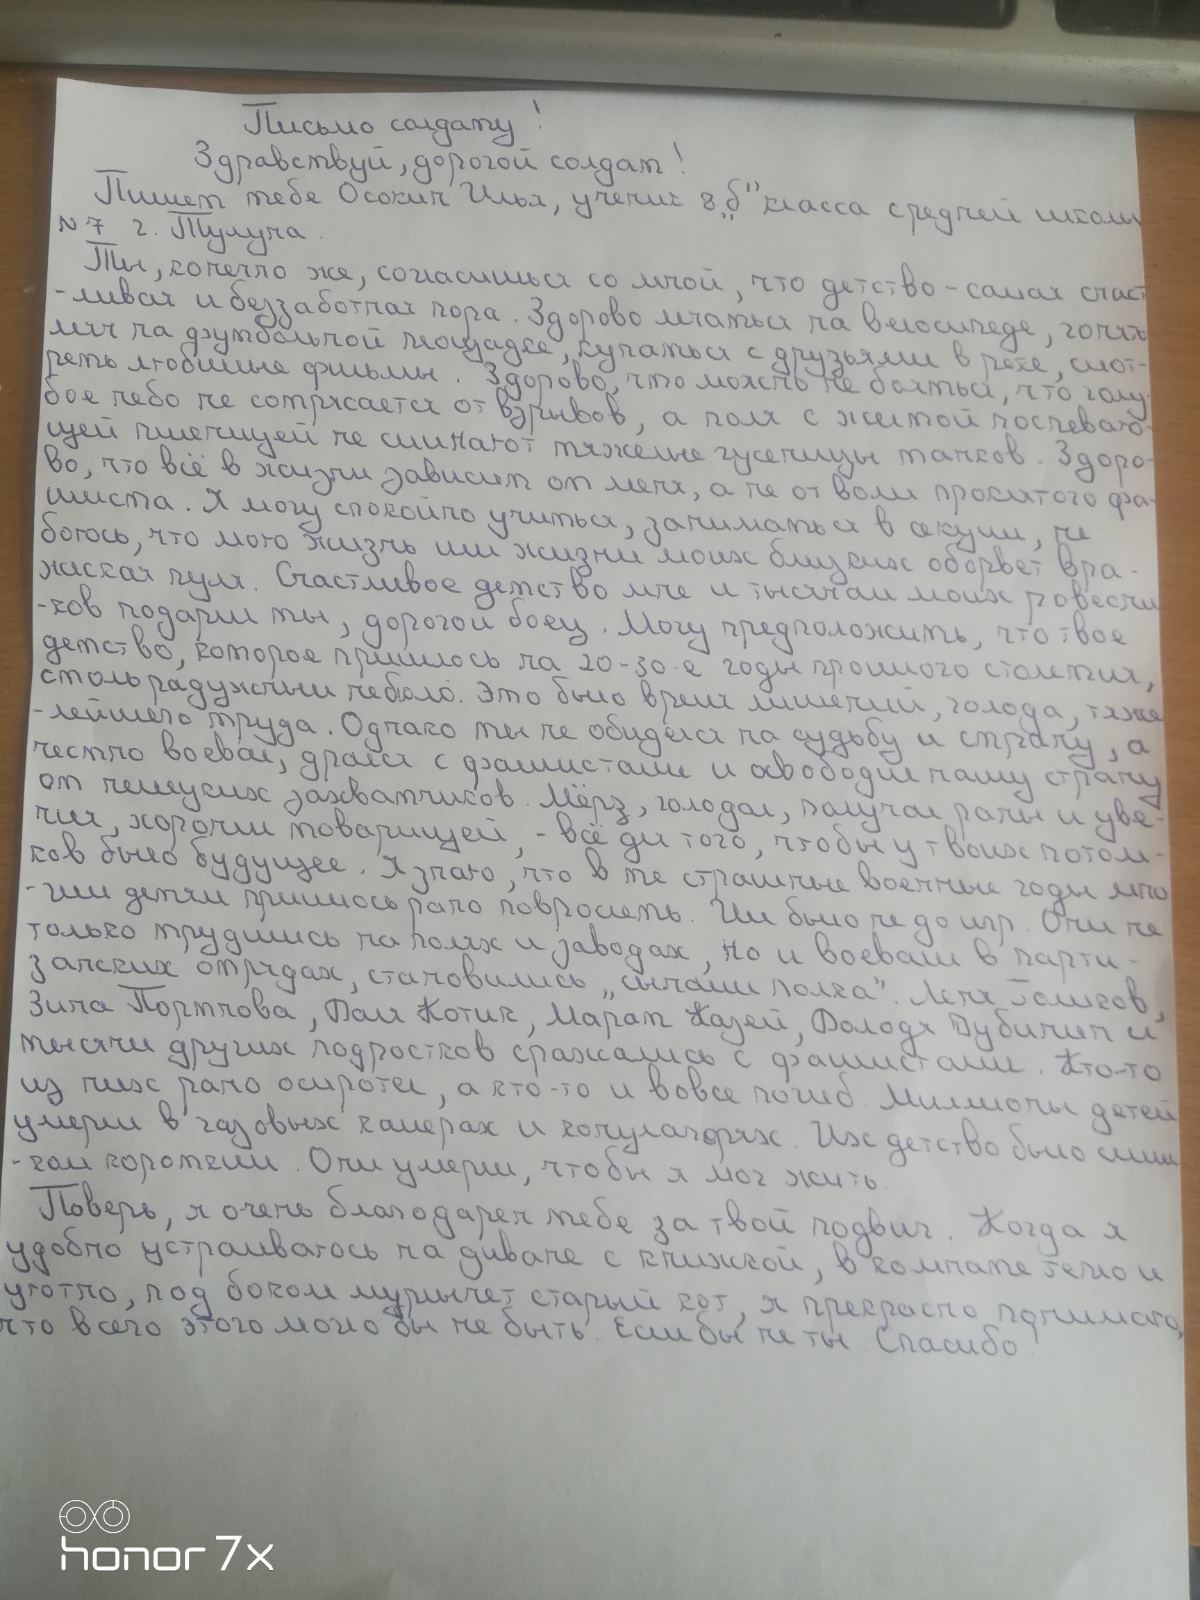 Письмо солдату!
Здравствуй, дорогой солдат!
Пишет тебе Осокин Илья, ученик 8 „б" класса средней школы
N 7 г. Тулуна.
Ты, конечно же, согласишься со мной, что детство - самая счаст
-ливая и беззаботная пора. Здорово мчаться на велосипеде, гонять
мяч на футбольной площадке, купаться с друзьями в реке, смот-
реть любимые фильмы. Здорово, что можно не бояться, что голу-
бое небо не сотрясается от взрывов, а поля с желтой поспеваю-
щей пшеницей не сминают тяжелые гусеницы танков. Здоро-
во, что всё в жизни зависит от меня, а не от воли проклятого фа-
шиста. Я могу спокойно учиться, заниматься в секции, не
боюсь, что мою жизнь или жизни моих близких оборвет вра-
жеская пуля. Счастливое детство мне и тысячам моих ровесни
-ков подарил ты, дорогой боец. Могу предположить, что твое
детство, которое пришлось на 20-30-е годы прошлого столетия,
столь радужным не было. Это было время лишений, голода, тяже
-лейшего труда. Однако ты не обиделся на судьбу и страну, а
честно воевал, дрался с фашистами и освободил нашу страну
от немецких захватчиков. Мёрз, голодал, получал раны и уве-
чия, хоронил товарищей, - всё для того, чтобы у твоих потом-
ков было будущее. Я знаю, что в те страшные военные годы мно
-гим детям пришлось рано повзрослеть. Им было не до игр. Они не
только трудились на полях и заводах, но и воевали в парти-
занских отрядах, становились „сынами полка". Леня Голиков,
Зина Портнова, Валя Котик, Марат Казей, Володя Дубинин и
тысячи других подростков сражались с фашистами. Кто-то
из них рано осиротел, а кто-то и вовсе погиб. Миллионы детей
умерли в газовых камерах и концлагерях. Их детство было слиш
-ком коротким. Они умерли, чтобы я мог жить.
Поверь, я очень благодарен тебе за твой подвиг. Когда я
удобно устраиваюсь на диване с книжкой, в комнате тепло и
уютно, под боком мурлычет старый кот, я прекрасно понимаю,
что всего этого могло бы не быть. Если бы не ты. Спасибо!
honor 7x